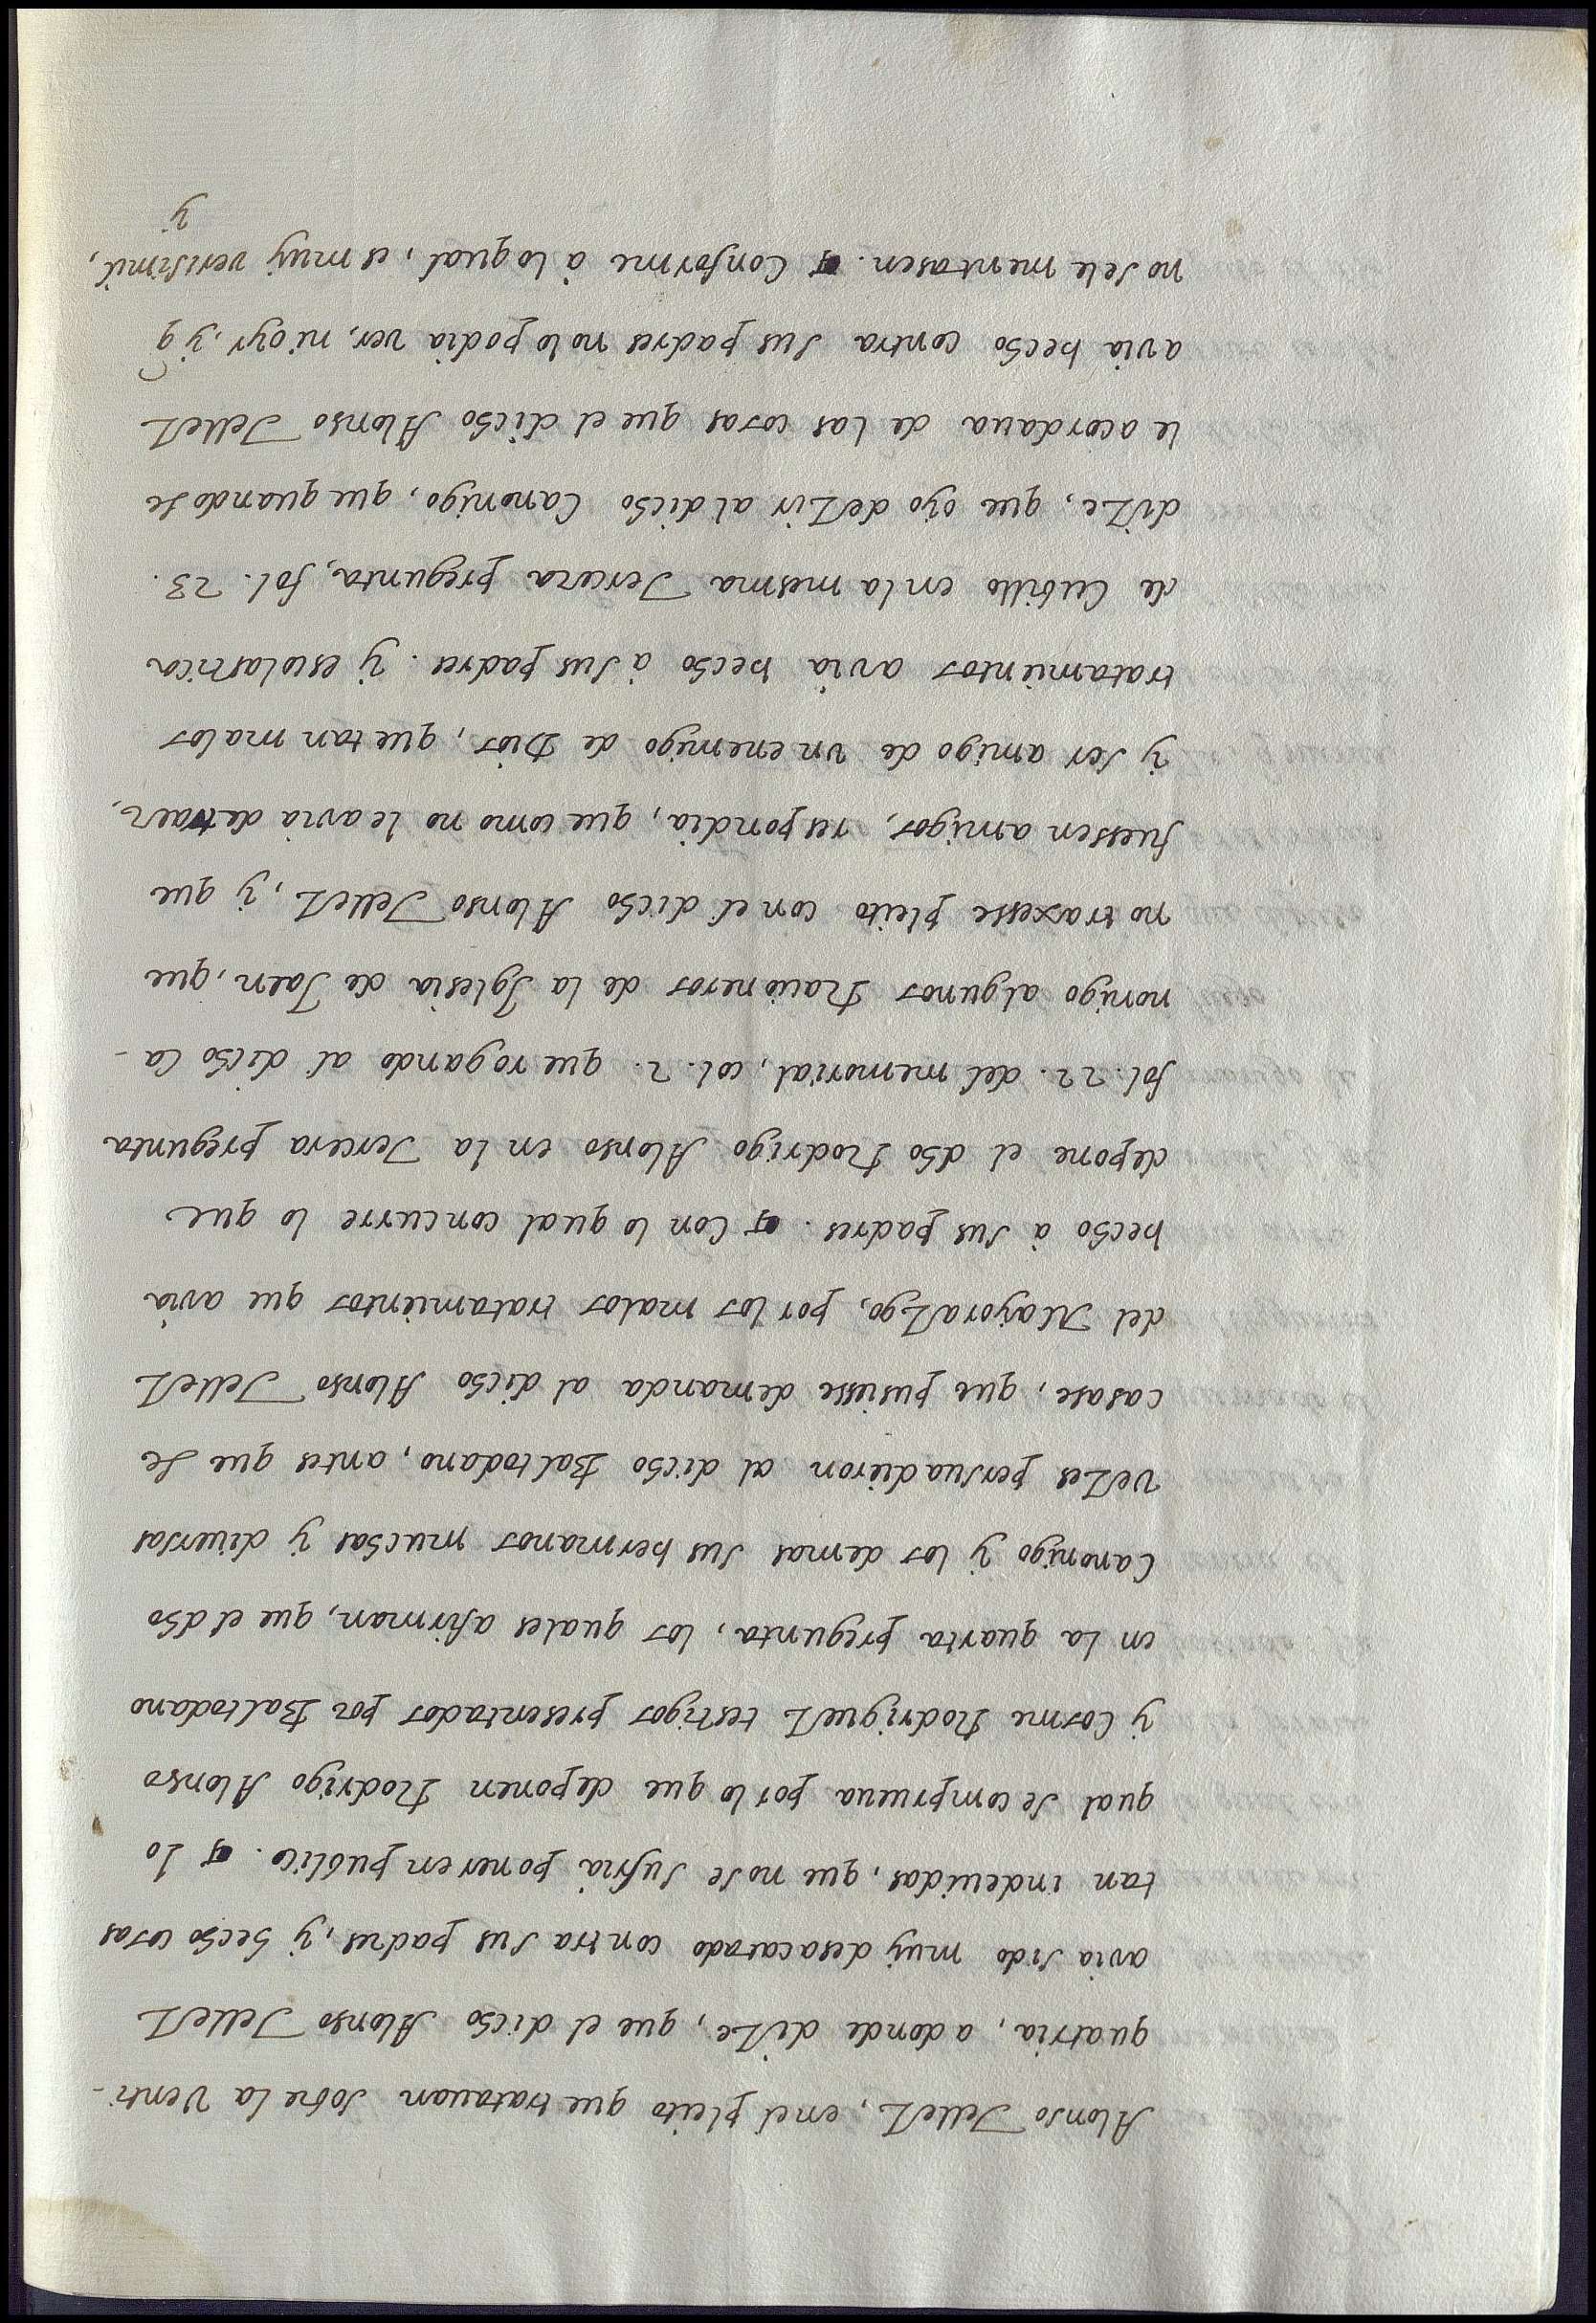 Alonso Tellez, en el pleito que tratauan sobre la Venti-
quatria, a donde dize, que el dicho Alonso Tellez
avia sido muy desacatado contra sus padres, y hecho cosas
tan indeuidas, que no se sufria poner en publico. Lo
qual se comprueua por lo que deponen Rodrigo Alonso
y Cosme Rodriguez testigos presentados por Baltodano
en la quarta pregunta, los quales afirman, que el dho
Canonigo y los demas sus hermanos muchas y diuersas
vezes persuadieron al dicho Baltodano, antes que se
casase, que pusiesse demanda al dicho Alonso Tellez
del Mayorazgo, por los malos tratamientos que avia
hecho à sus padres. Con lo qual concurre lo que
depone el dho Rodrigo Alonso en la Tercera pregunta
fol. 22. del memorial, col. 2. que rogando al dicho Ca-
nonigo algunos Racioneros de la Iglesia de Jaen, que
no traxesse pleito con el dicho Alonso Tellez, y que
fuessen amigos, respondia, que como no le avia de traer,
y ser amigo de un enemigo de Dios, que tan malos
tratamientos avia hecho à sus padres. y escolastica
de Cubillo en la mesma Tercera pregunta, fol. 23.
dize, que oyo dezir al dicho Canonigo, que quando se
le acordaua de las cosas que el dicho Alonso Tellez
avia hecho contra sus padres no lo podia ver, ni oyr, y q
no se le mentasen. Conforme à lo qual, es muy verisimil,
y